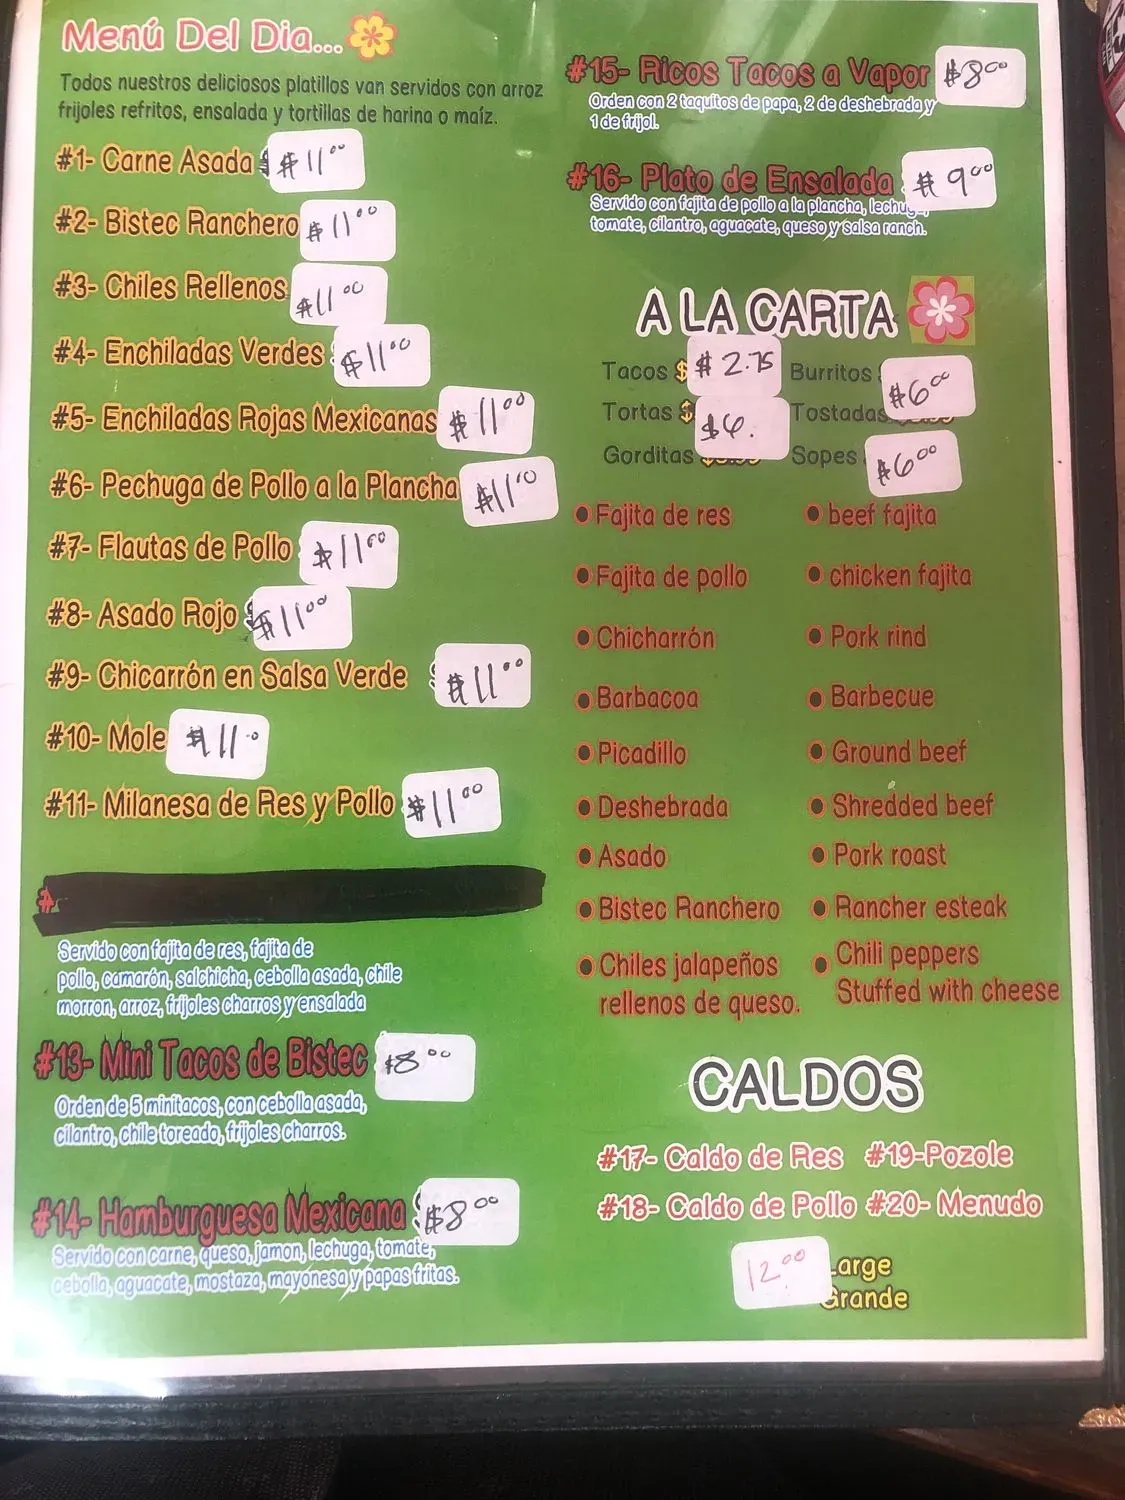 Menú Del Dia...
Todos nuestros deliciosos platillos van servidos con arroz
frijoles refritos, ensalada y tortillas de harina o maíz.
#1- Carne Asada $11.00
#2- Bistec Ranchero $11.00
#3- Chiles Rellenos $11.00
#4- Enchiladas Verdes $11.00
#5- Enchiladas Rojas Mexicanas $11.00
#6- Pechuga de Pollo a la Plancha $11.00
#7- Flautas de Pollo $11.00
#8- Asado Rojo $11.00
#9- Chicarrón en Salsa Verde $11.00
#10- Mole $11.0
#11- Milanesa de Res y Pollo $11.00
#
Servido con fajita de res, fajita de
pollo, camarón, salchicha, cebolla asada, chile
morron, arroz, frijoles charros y ensalada
#13- Mini Tacos de Bistec $8.00
Orden de 5 minitacos, con cebolla asada,
cilantro, chile toreado, frijoles charros.
#14- Hamburguesa Mexicana $8.00
Servido con carne, queso, jamon, lechuga, tomate,
cebolla, aguacate, mostaza, mayonesa y papas fritas.
#15- Ricos Tacos a Vapor $8.00
Orden con 2 taquitos de papa, 2 de deshebrada y
1 de frijol.
#16- Plato de Ensalada $9.00
Servido con fajita de pollo a la plancha, lechuga,
tomate, cilantro, aguacate, queso y salsa ranch.
A LA CARTA
Tacos $ $2.75 Burritos $6.00
Tortas $ $6. Tostadas
Gorditas Sopes $6.00
Fajita de res
beef fajita
Fajita de pollo
chicken fajita
Chicharrón
Pork rind
Barbacoa
Barbecue
Picadillo
Ground beef
Deshebrada
Shredded beef
Asado
Pork roast
Bistec Ranchero
Rancher esteak
Chiles jalapeños
rellenos de queso.
Chili peppers
Stuffed with cheese
CALDOS
#17- Caldo de Res #19-Pozole
#18- Caldo de Pollo #20- Menudo
12.00 Large
Grande